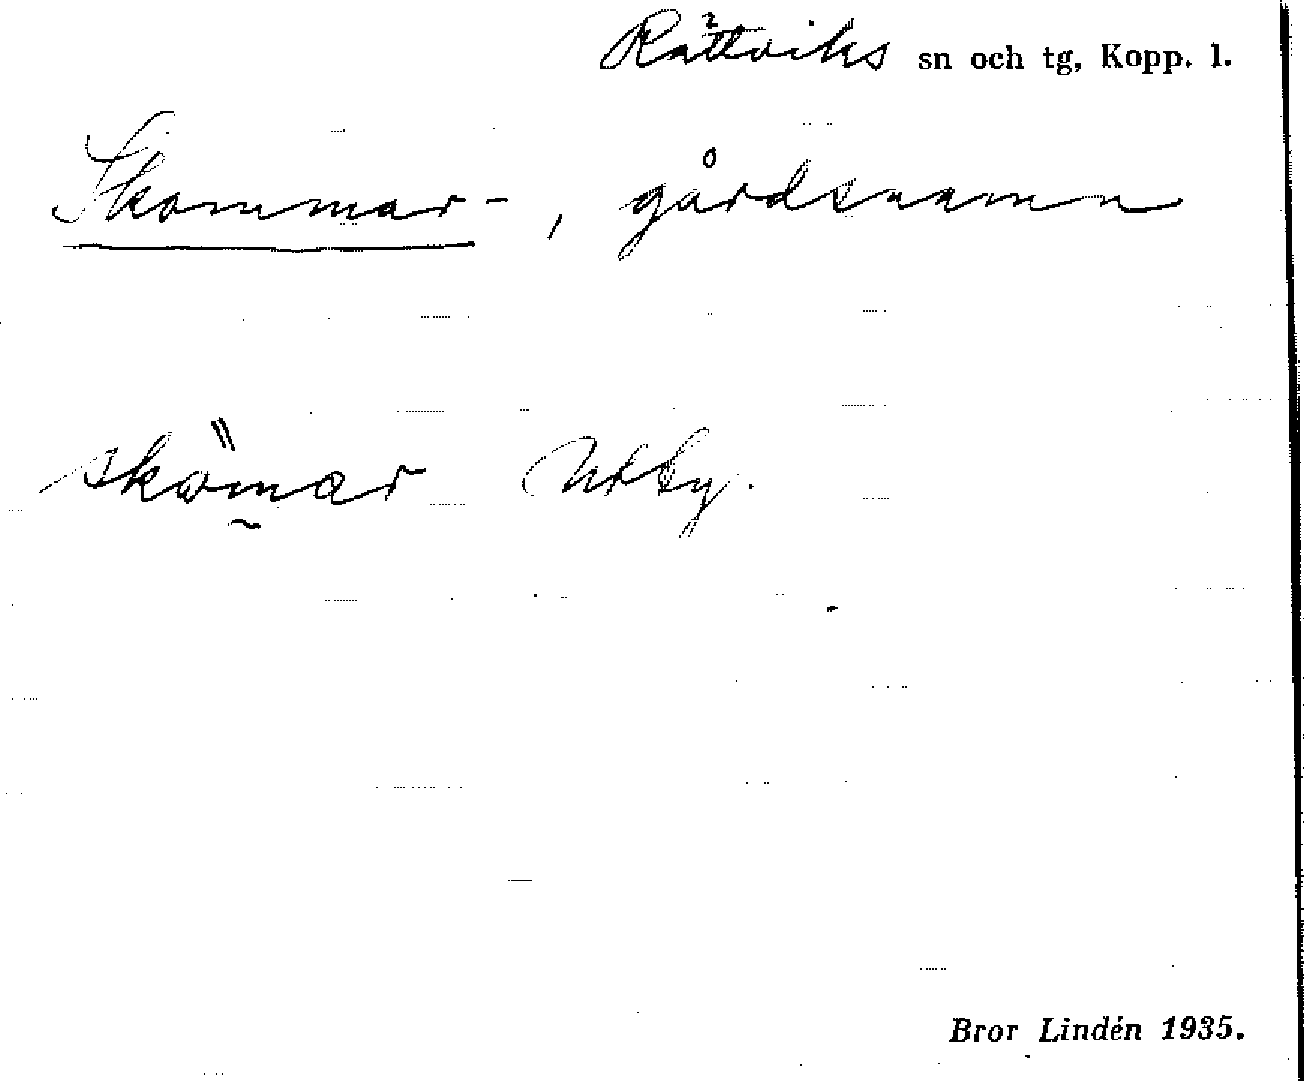 Rättviks sn och tg, Kopp. l.
Skommar-, gårdsnamn
skömar Utby.
Bror Lindén 1935.